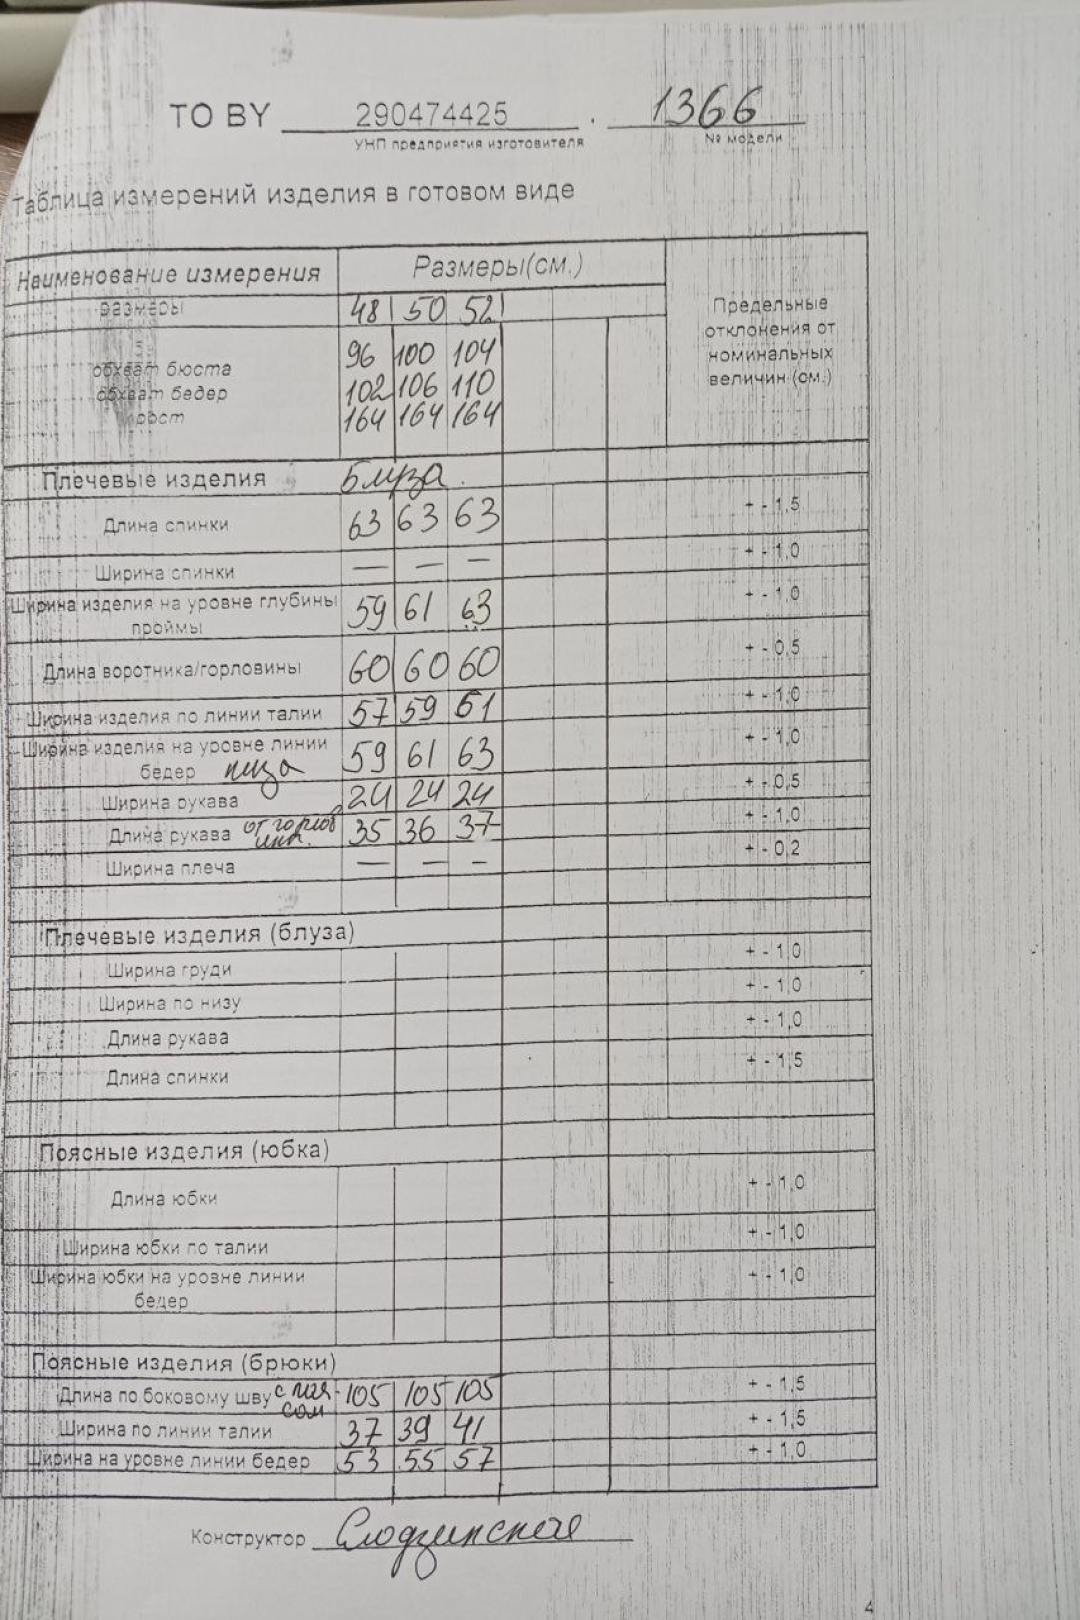 ТО BY 290474425 . 1366
УНП предприятия изготовителя № модели
Таблица измерений изделия в готовом виде
Наименование измерения Размеры(см.) Предельные отклонения от номинальных величин (см.)
размеры 48 50 52
обхват бюста 96 100 104
обхват бедер 102 106 110
рост 164 164 164
Плечевые изделия Блуза.
Длина спинки 63 63 63 + - 1,5
Ширина спинки — — — + - 1,0
Ширина изделия на уровне глубины проймы 59 61 63 + - 1,0
Длина воротника/горловины 60 60 60 + - 0,5
Ширина изделия по линии талии 57 59 61 + - 1,0
Ширина изделия на уровне линии бедер низа 59 61 63 + - 1,0
Ширина рукава 24 24 24 + - 0,5
Длина рукава от горловины. 35 36 37 + - 1,0
Ширина плеча — — — + - 0,2
Плечевые изделия (блуза)
Ширина груди + - 1,0
Ширина по низу + - 1,0
Длина рукава + - 1,0
Длина спинки + - 1,5
Поясные изделия (юбка)
Длина юбки + - 1,0
Ширина юбки по талии + - 1,0
Ширина юбки на уровне линии бедер + - 1,0
Поясные изделия (брюки)
Длина по боковому шву с поясом 105 105 105 + - 1,5
Ширина по линии талии 37 39 41 + - 1,5
Ширина на уровне линии бедер 53 55 57 + - 1,0
Конструктор Слодзинская
4